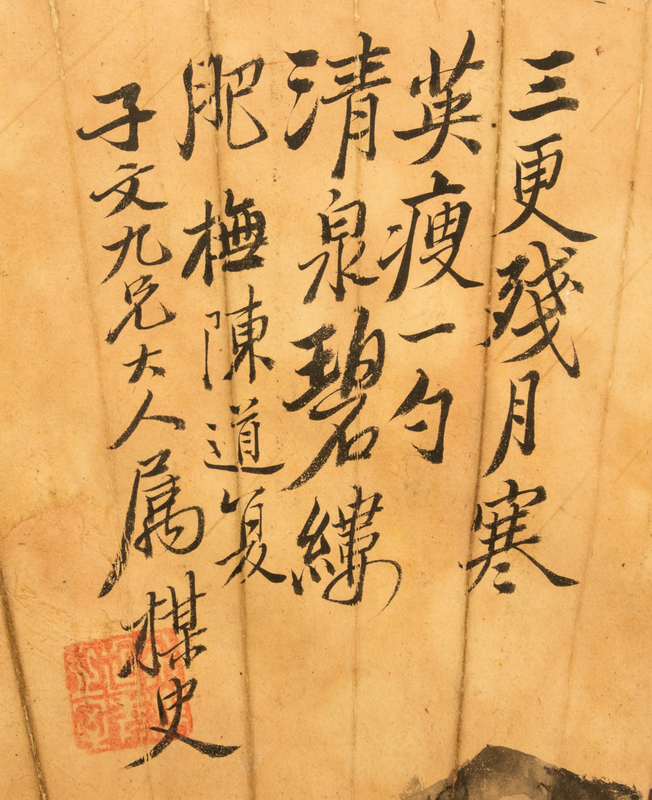 三更殘月寒
英瘦一勺
清泉碧縷
肥 梅陳道复
子文九兄大人属 楳史